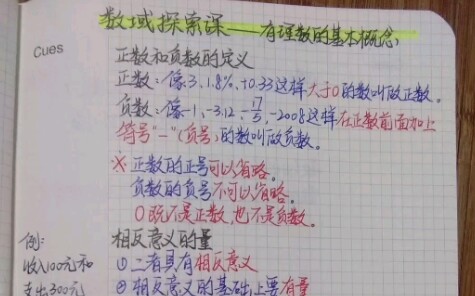 数域探索课——有理数的基本概念:
Cues
正数和负数的定义
正数:像3、1.8%、+0.33这样大于0的数叫做正数。
负数:像-1、-3.12、-17/5、-2008这样在正数前面加上
符号"-"(负号)的数叫做负数。
※ 正数的正号可以省略。
负数的负号不可以省略。
0既不是正数,也不是负数。
例: 相反意义的量
收入100元和 ① 二者具有相反意义
支出300元 ② 相反意义的基础上要有量